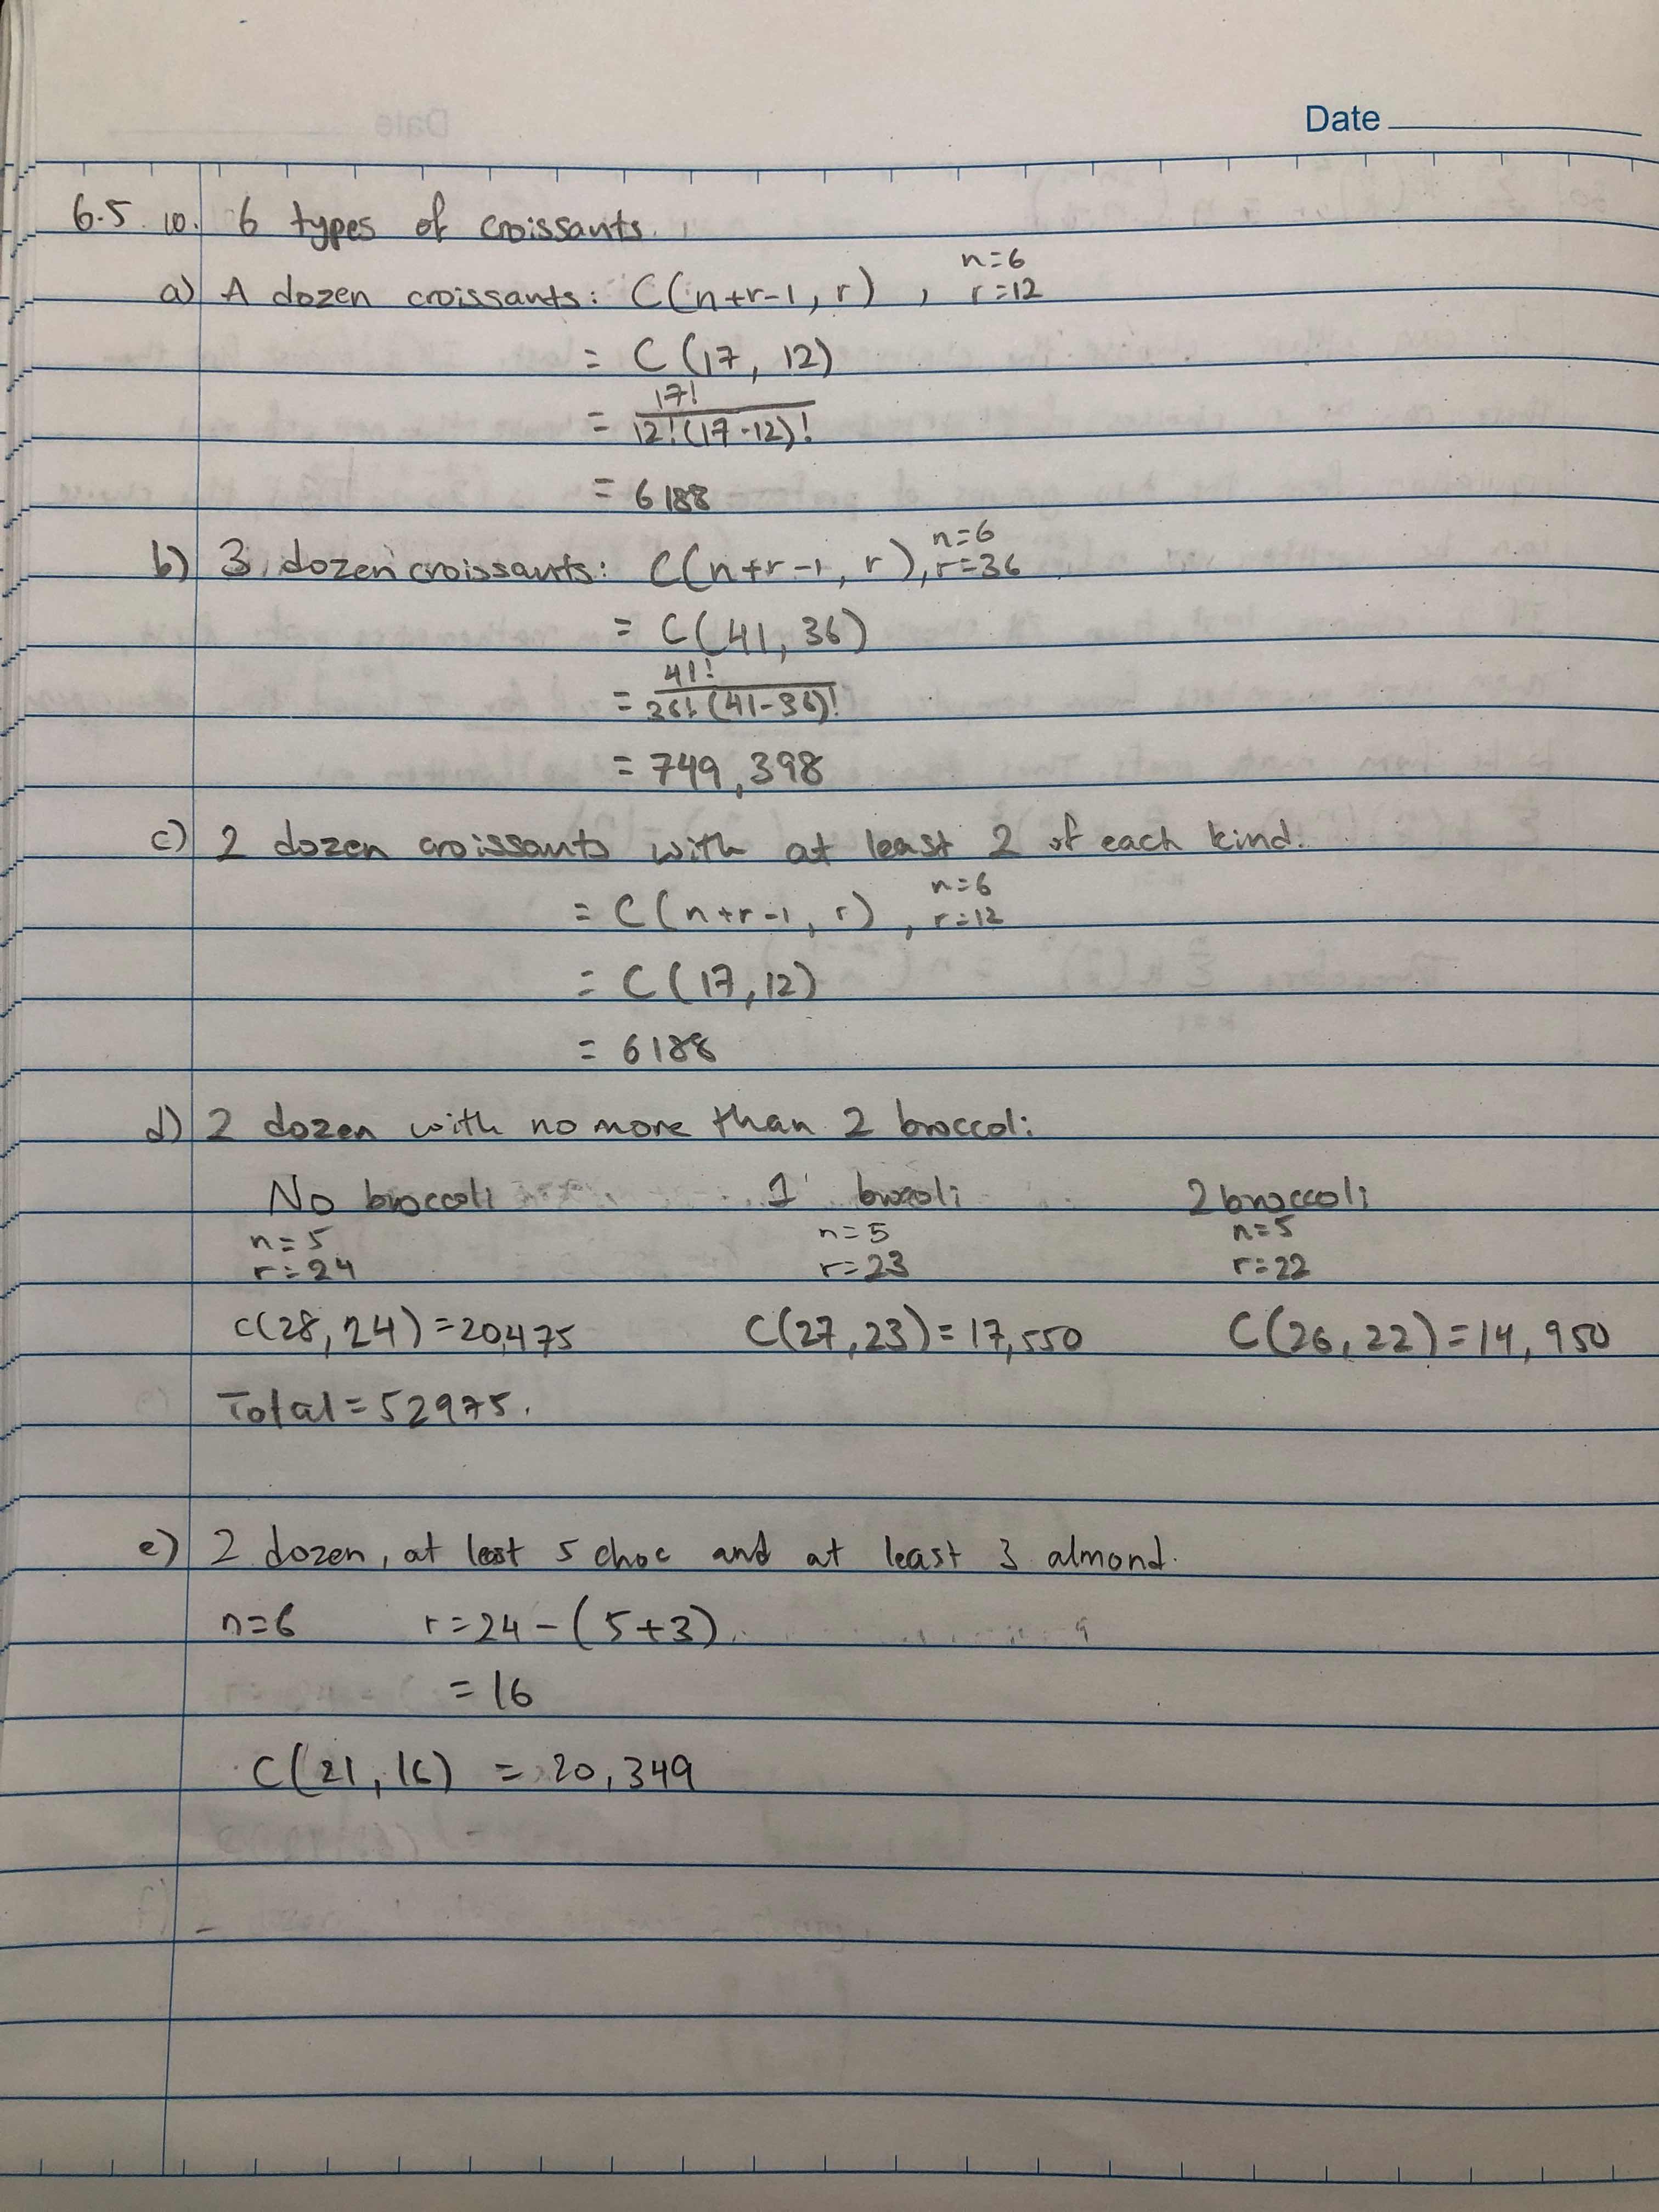 Date
6.5 10. 6 types of croissants.
n=6
a) A dozen croissants: C(n+r-1, r) , r=12
= C(17, 12)
17!
= 12!(17-12)!
= 6188
n=6
b) 3 dozen croissants: C(n+r-1, r), r=36
= C(41, 36)
41!
= 36!(41-36)!
= 749,398
c) 2 dozen croissants with at least 2 of each kind.
n=6
= C(n+r-1, r) , r=12
= C(17,12)
= 6188
d) 2 dozen with no more than 2 broccoli
No broccoli 1 broccoli 2 broccoli
n=5 n=5 n=5
r=24 r=23 r=22
C(28,24)=20,475 C(27,23)=17,550 C(26,22)=14,950
Total=52975.
e) 2 dozen, at least 5 choc and at least 3 almond.
n=6 r=24-(5+3)
=16
C(21,16) = 20,349